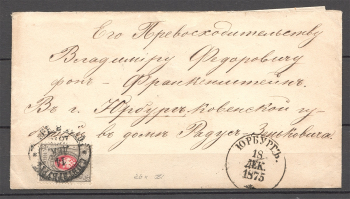 Его Превосходительству
Владиміру Федоровичу
фонъ - Франкенштейнъ.
Въ г. Юрбургъ Ковенской гу
въ домъ Радус Зенковича.
ЮРБУРГЪ.
18
ДЕК.
1875